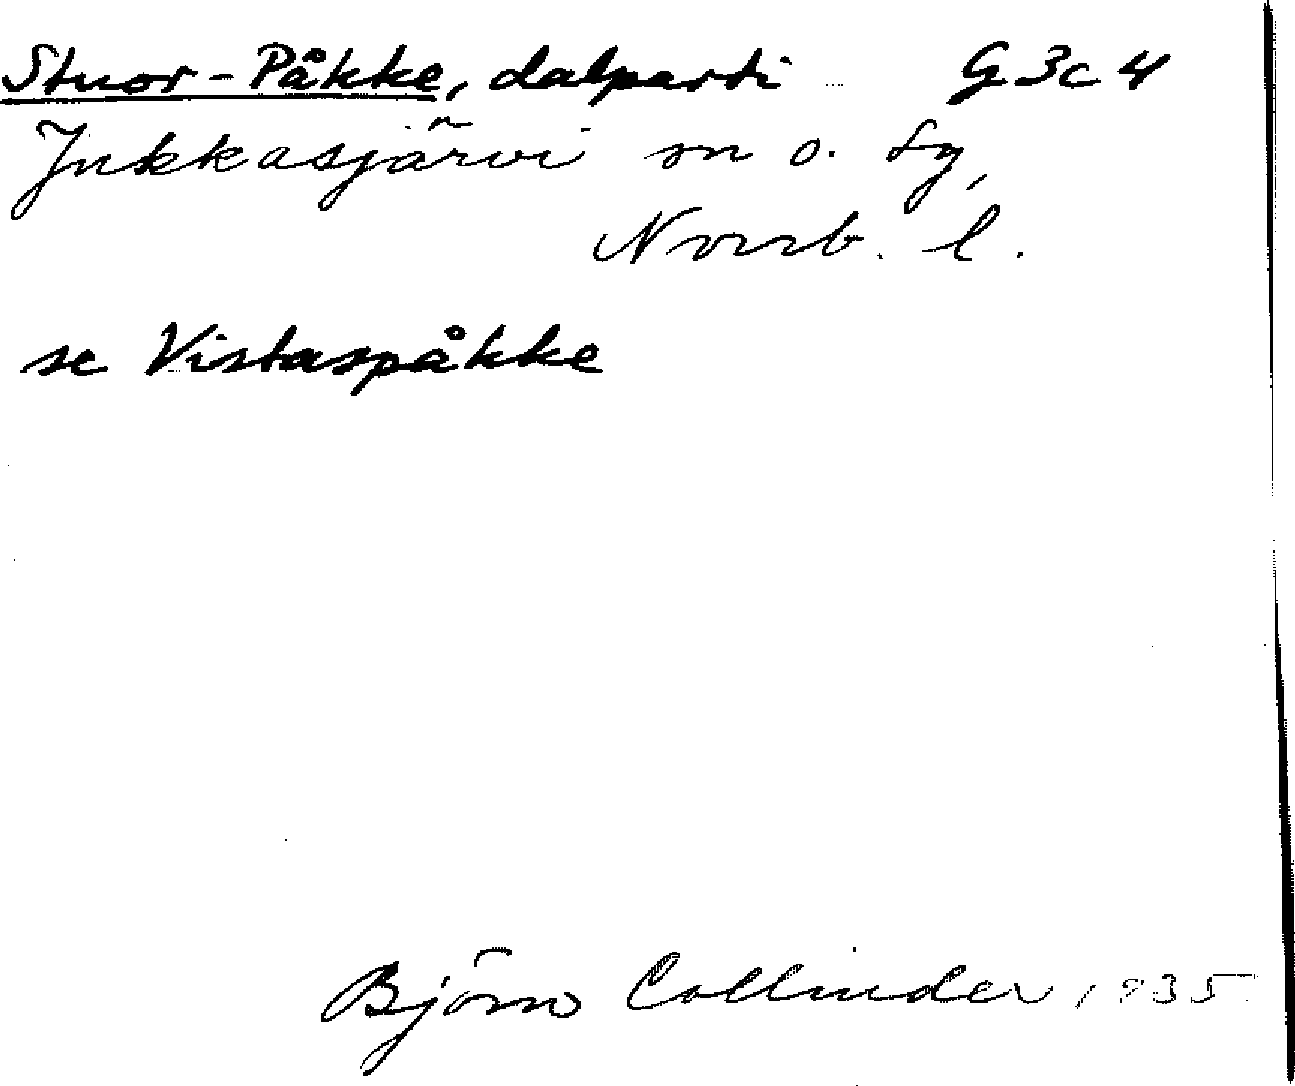 Stuor-Påkke, dalparti G 3c 4
Jukkasjärvi sn o. lg,
Norrb. l.
se Vistaspåkke
Björn Collinder, 1935